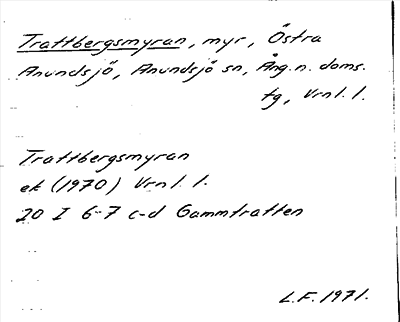 Trattbergsmyran, myr, Östra
Anundsjö, Anundsjö sn, Ång.n. doms.
tg, Vrnl. l.
Trattbergsmyran
ek (1970) Vrnl. l.
20 I 6-7 c-d Gammtratten
L.F. 1971.